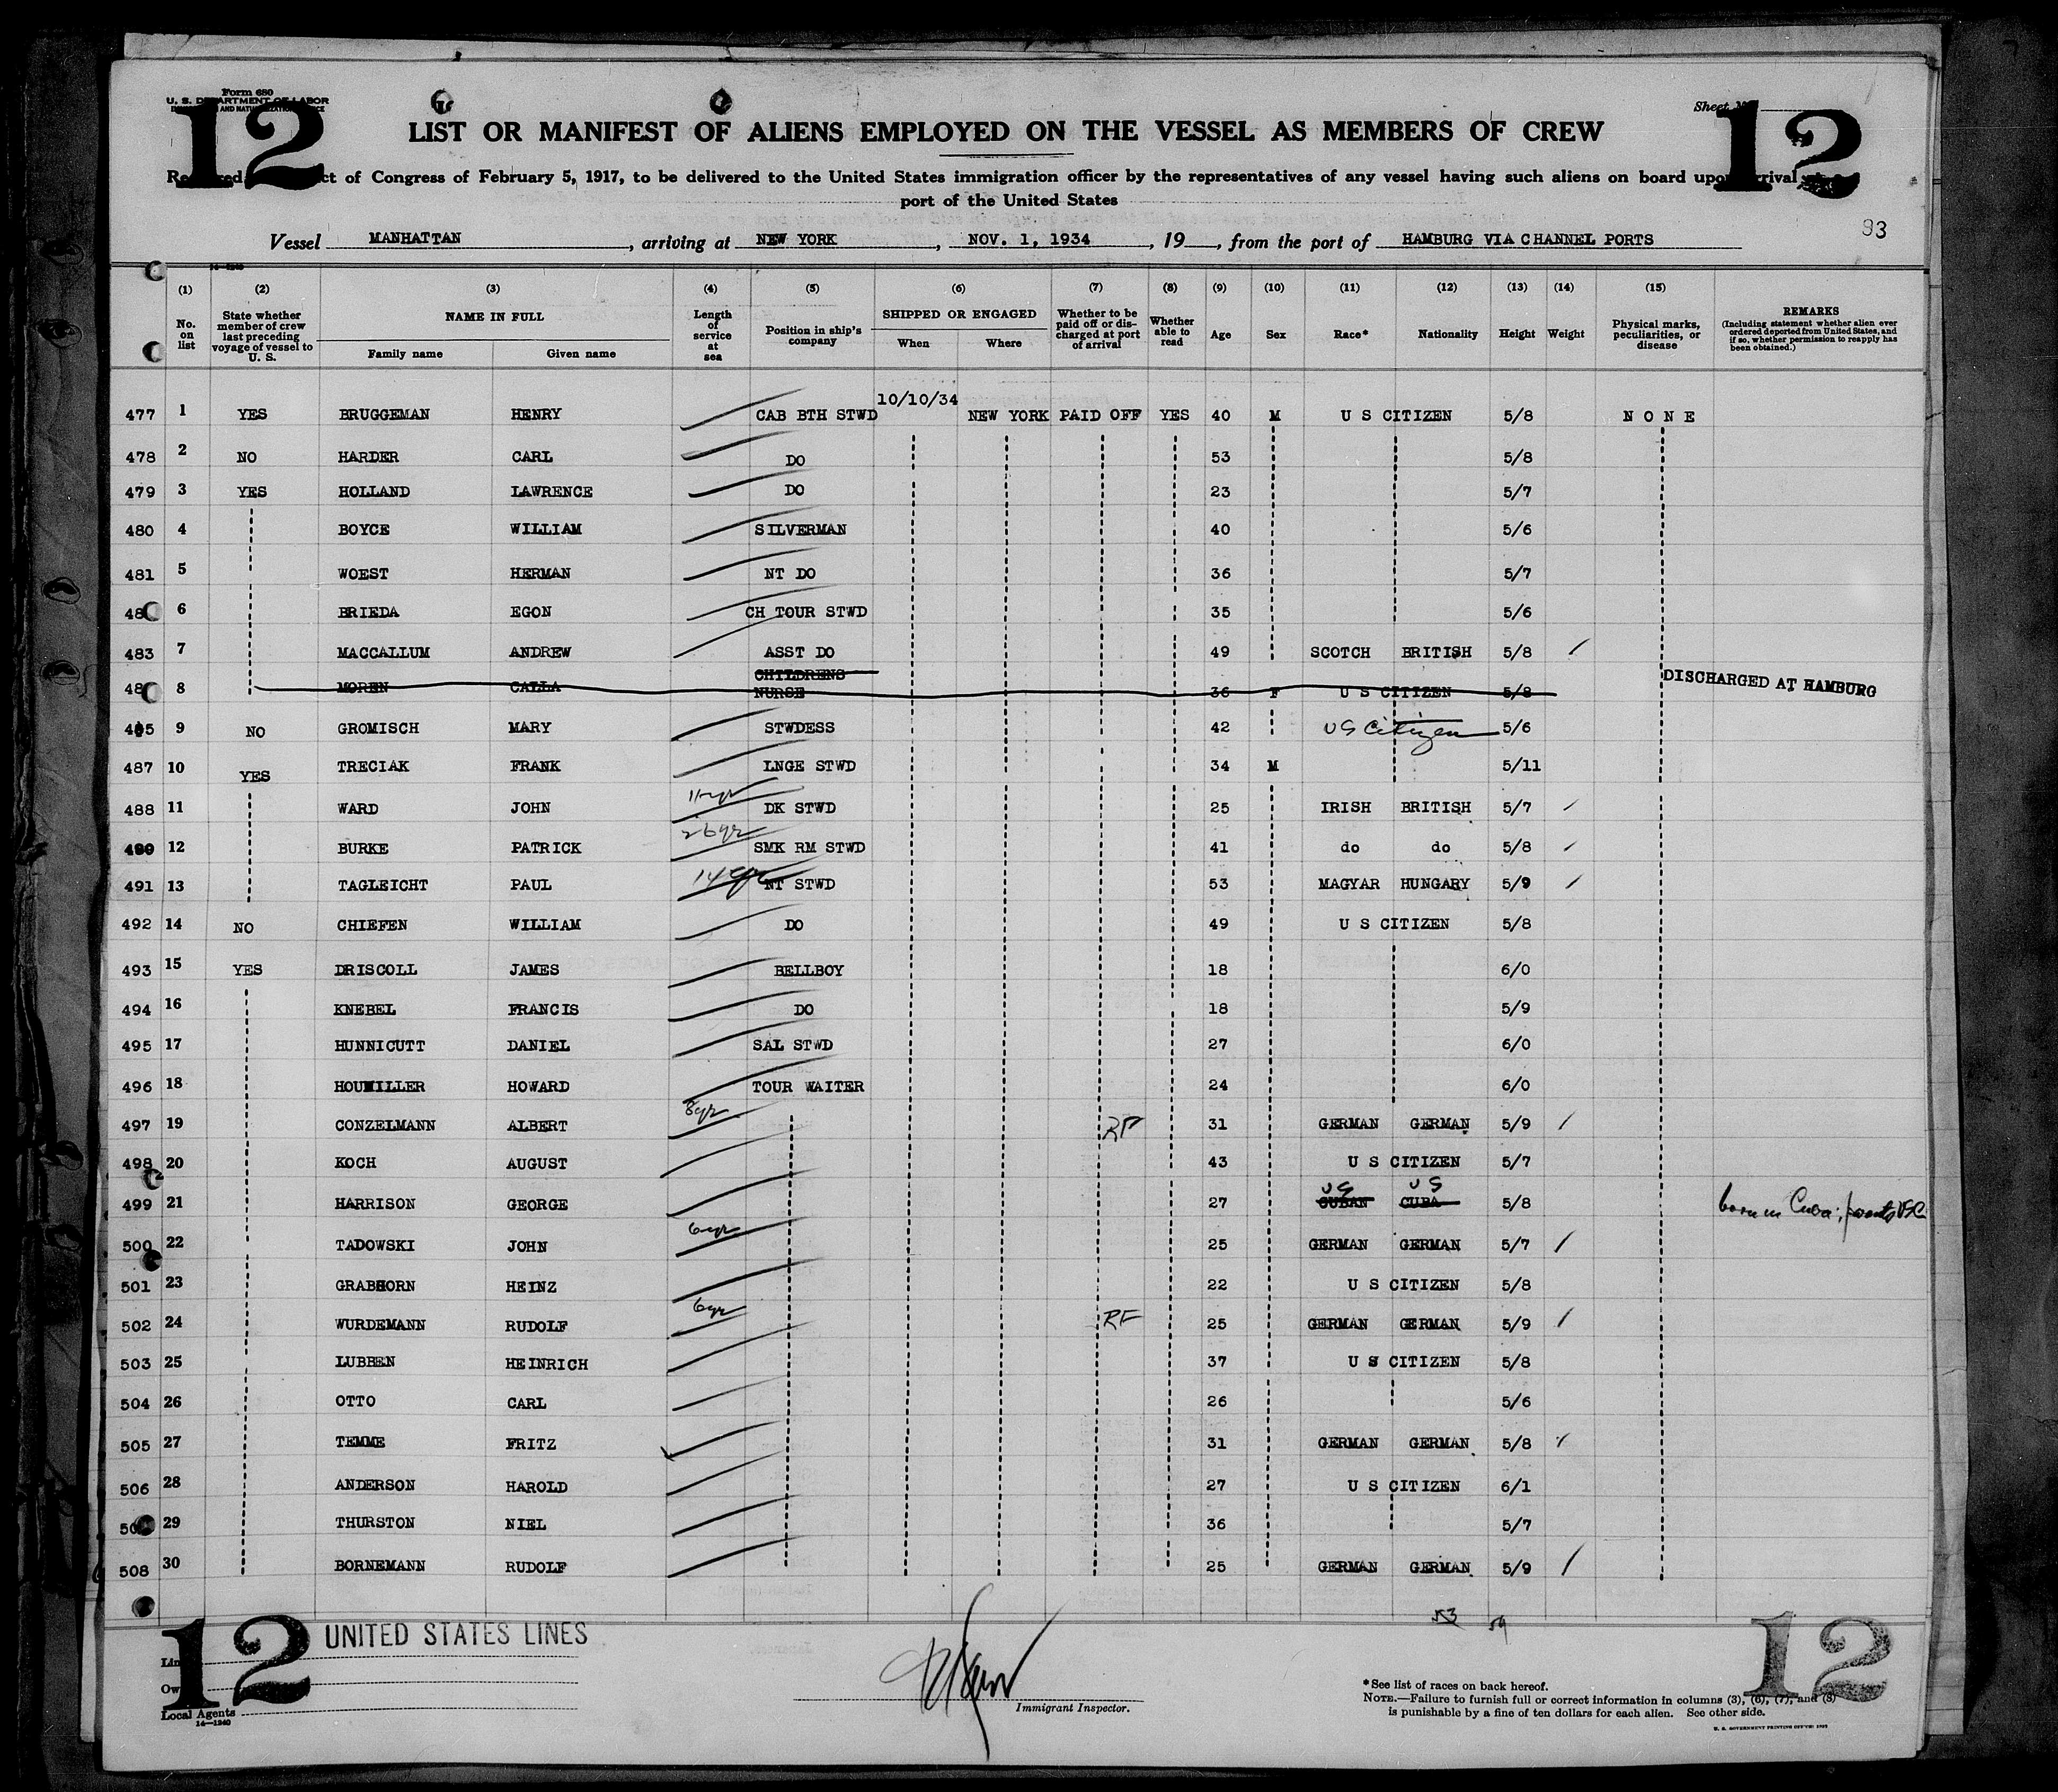 Form 680
U. S. DEPARTMENT OF LABOR
12
12
Sheet
LIST OR MANIFEST OF ALIENS EMPLOYED ON THE VESSEL AS MEMBERS OF CREW
ct of Congress of February 5, 1917, to be delivered to the United States immigration officer by the representatives of any vessel having such aliens on board upon arrival
port of the United States
Vessel MANHATTAN, arriving at NEW YORK, NOV. 1, 1934, 19, from the port of HAMBURG VIA CHANNEL PORTS
93
14—1240
(1) (2) (3) (4) (5) (6) (7) (8) (9) (10) (11) (12) (13) (14) (15)
No. on list
State whether member of crew last preceding voyage of vessel to U. S.
NAME IN FULL
Family name Given name
Length of service at sea
Position in ship's company
SHIPPED OR ENGAGED
When Where
Whether to be paid off or discharged at port of arrival
Whether able to read
Age
Sex
Race*
Nationality
Height
Weight
Physical marks, peculiarities, or disease
REMARKS
(Including statement whether alien ever ordered deported from United States, and if so, whether permission to reapply has been obtained.)
477 1 YES BRUGGEMAN HENRY CAB BTH STWD 10/10/34 NEW YORK PAID OFF YES 40 M U S CITIZEN 5/8 N O N E
478 2 NO HARDER CARL DO 53 5/8
479 3 YES HOLLAND LAWRENCE DO 23 5/7
480 4 BOYCE WILLIAM SILVERMAN 40 5/6
481 5 WOEST HERMAN NT DO 36 5/7
48 6 BRIEDA EGON CH TOUR STWD 35 5/6
483 7 MACCALLUM ANDREW ASST DO 49 SCOTCH BRITISH 5/8
48 8 MOREN CALLA CHILDRENS NURSE 36 F U S CITIZEN 5/8 DISCHARGED AT HAMBURG
485 9 NO GROMISCH MARY STWDESS 42 US Citizen 5/6
487 10 YES TRECIAK FRANK LNGE STWD 34 M 5/11
488 11 WARD JOHN 11 yr DK STWD 25 IRISH BRITISH 5/7
490 12 BURKE PATRICK 26 yr SMK RM STWD 41 do do 5/8
491 13 TAGLEICHT PAUL 14 yr NT STWD 53 MAGYAR HUNGARY 5/9
492 14 NO CHIEFEN WILLIAM DO 49 U S CITIZEN 5/8
493 15 YES DRISCOLL JAMES BELLBOY 18 6/0
494 16 KNEBEL FRANCIS DO 18 5/9
495 17 HUNNICUTT DANIEL SAL STWD 27 6/0
496 18 HOUMILLER HOWARD TOUR WAITER 24 6/0
497 19 CONZELMANN ALBERT 8yr RF 31 GERMAN GERMAN 5/9
498 20 KOCH AUGUST 43 U S CITIZEN 5/7
499 21 HARRISON GEORGE 27 US US CUBAN CUBA 5/8 born in Cuba; parents USC
500 22 TADOWSKI JOHN 6yr 25 GERMAN GERMAN 5/7
501 23 GRABHORN HEINZ 22 U S CITIZEN 5/8
502 24 WURDEMANN RUDOLF 6yr RF 25 GERMAN GERMAN 5/9
503 25 LUBBEN HEINRICH 37 U S CITIZEN 5/8
504 26 OTTO CARL 26 5/6
505 27 TEMME FRITZ 31 GERMAN GERMAN 5/8
506 28 ANDERSON HAROLD 27 U S CITIZEN 6/1
50 29 THURSTON NIEL 36 5/7
508 30 BORNEMANN RUDOLF 25 GERMAN GERMAN 5/9
12
UNITED STATES LINES
12
Local Agents
14—1240
Immigrant Inspector.
*See list of races on back hereof.
NOTE.—Failure to furnish full or correct information in columns (3), (6), (7), and (8)
is punishable by a fine of ten dollars for each alien. See other side.
U. S. GOVERNMENT PRINTING OFFICE